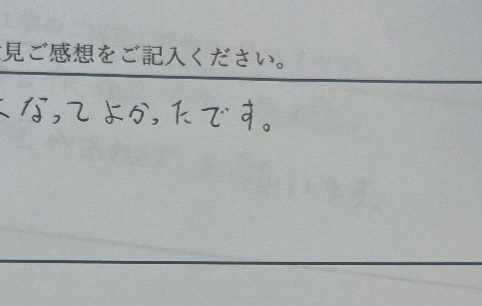 見ご感想をご記入ください。
くなってよかったです。